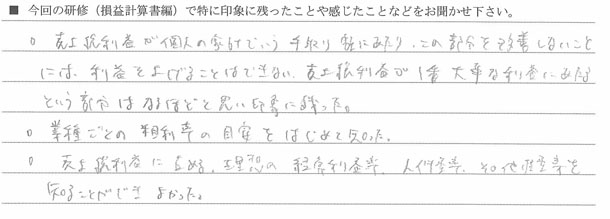 ■ 今回の研修（損益計算書編）で特に印象に残ったことや感じたことなどをお聞かせ下さい。
○ 売上総利益が個人の家計でいう手取り額にあたり、この部分を改善しないこと
には、利益を上げることはできない、売上総利益が1番大事な利益にあたる
という部分はなるほどと思い印象に残った。
○ 業種ごとの粗利率の目安をはじめて知った。
○ 売上総利益に占める、理想の経常利益率、人件費率、その他経費率を
知ることができよかった。